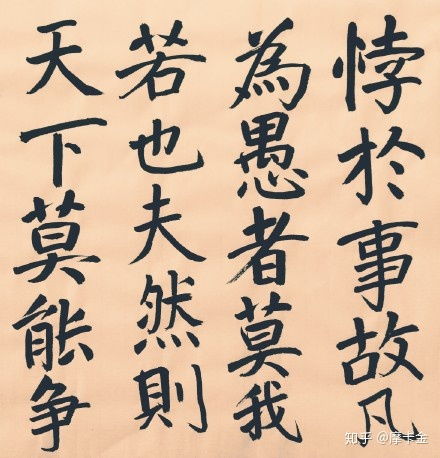 悖於事故凡
為愚者莫我
若也夫然則
天下莫能争
知乎 @摩卡金